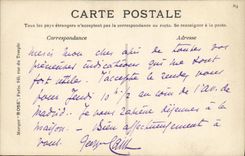 CARTE POSTALE
Tous les pays étrangers n'acceptent pas la correspondance au recto. Se renseigner à la poste.
Correspondance Adresse
merci mon cher ami de toutes vos
précieuses indications qui me sont
fort utiles. J'accepte le rendez vous
pour Jeudi 10h 1/2 au coin de l'av. de
Madrid. Je vous ramène déjeuner à la
maison. Bien affectueusement à
vous.
Marque "ROSE", Paris, 98, rue du Temple